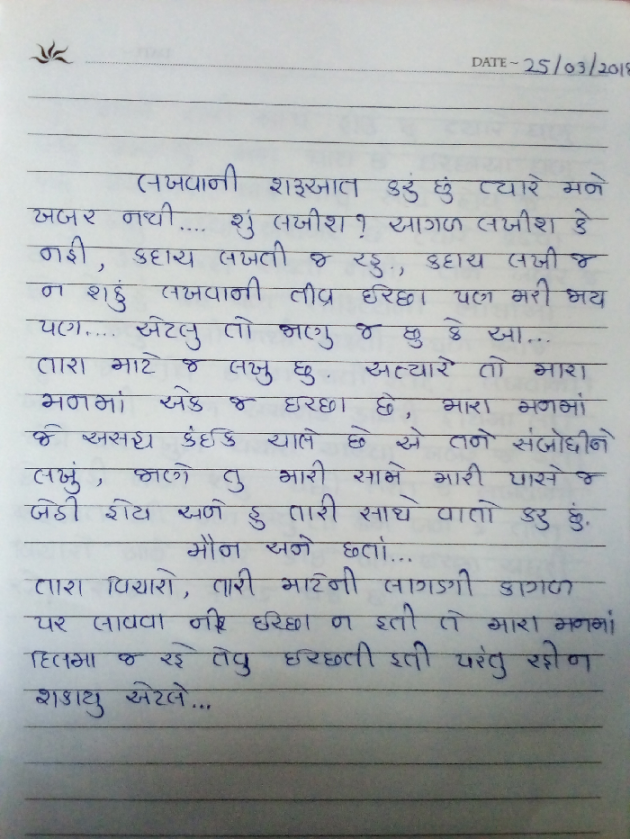 DATE~ 25/03/2018
લખવાની શરૂઆત કરું છું ત્યારે મને
ખબર નથી.... શું લખીશ? આગળ લખીશ કે
નહી, કદાચ લખતી જ રહુ., કદાચ લખી જ
ન શકું લખવાની તીવ્ર ઈચ્છા પણ મરી જાય
પણ.... એટલુ તો જાણુ જ છુ કે આ...
તારા માટે જ લખુ છુ અત્યારે તો મારા
મનમાં એક જ ઈચ્છા છે, મારા મનમાં
જે અસહ્ય કંઈક ચાલે છે એ તને સંબોધીને
લખું, જાણે તુ મારી સામે મારી પાસે જ
બેઠી હોય અને હુ તારી સાથે વાતો કરુ છું.
મૌન અને છતાં...
તારા વિચારો, તારી માટેની લાગણી કાગળ
પર લાવવા ની ઈચ્છા ન હતી તે મારા મનમાં
દિલમા જ રહે તેવુ ઈચ્છતી હતી પરંતુ રહી ન
શકાયુ એટલે...